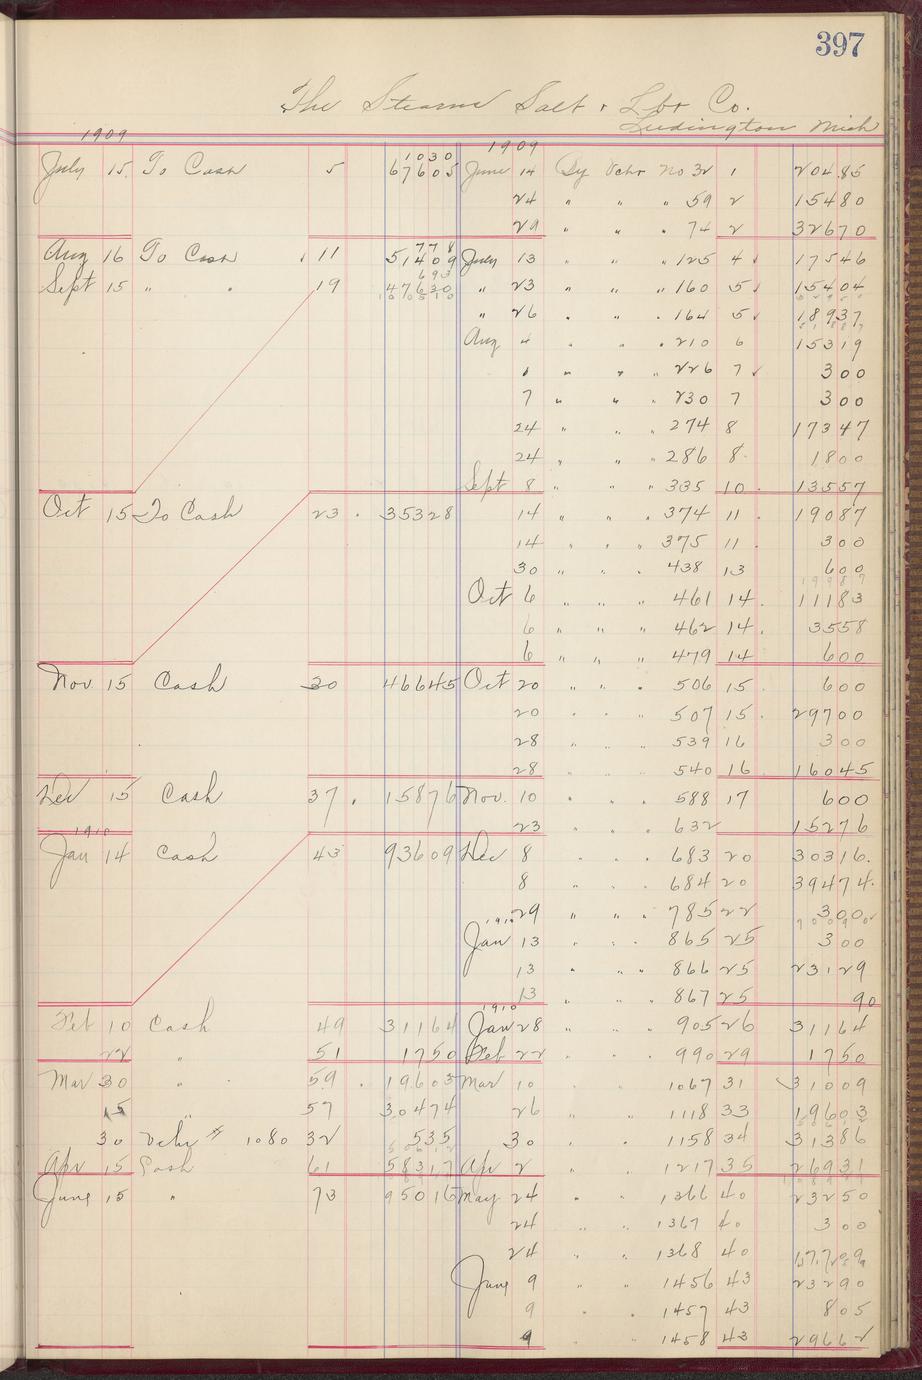 397
The Stearns Salt & Lbr Co.
Ludington Mich
1909 1909
1030
July 15 To Cash 5 67605 June 14 By Vchr No 32 1 20485
24 " " " 59 2 15480
29 " " " 74 2 32670
778
Aug 16 To Cash 11 51409 July 13 " " " 125 4 17546
693
Sept 15 " " 19 47630 " 23 " " " 160 5 15404
" 26 " " " 164 5 18937
Aug 4 " " " 210 6 15319
" " " 226 7 300
7 " " " 230 7 300
24 " " " 274 8 17347
24 " " " 286 8 1800
Sept 8 " " " 335 10 13557
Oct 15 To Cash 23 35328 14 " " " 374 11 19087
14 " " " 375 11 300
30 " " " 438 13 600
19987
Oct 6 " " " 461 14 11183
6 " " " 462 14 3558
6 " " " 479 14 600
Nov 15 Cash 30 46645 Oct 20 " " " 506 15 600
20 " " " 507 15 29700
28 " " " 539 16 300
28 " " " 540 16 16045
Dec 15 Cash 37 15876 Nov. 10 " " " 588 17 600
23 " " " 632 15276
1910
Jan 14 Cash 43 93609 Dec 8 " " " 683 20 30316
8 " " " 684 20 39474
29 " " " 785 22 300
1910
Jan 13 " " " 865 25 300
13 " " " 866 25 23129
13 " " " 867 25 90
1910
Feb 10 Cash 49 31164 Jan 28 " " " 905 26 31164
22 " 51 1750 Feb 22 " " 990 29 1750
Mar 30 " 59 19603 Mar 10 " 1067 31 31009
15 " 57 30474 26 " 1118 33 19603
30 Vchr # 1080 32 535 30 " 1158 34 31386
Apr 15 Cash 61 58317 Apr 2 " 1217 35 26931
June 15 " 73 95016 May 24 " " 1366 40 23250
24 " " 1367 40 300
24 " " 1368 40 17709
June 9 " " 1456 43 23290
9 " " 1457 43 805
9 " " 1458 43 29662